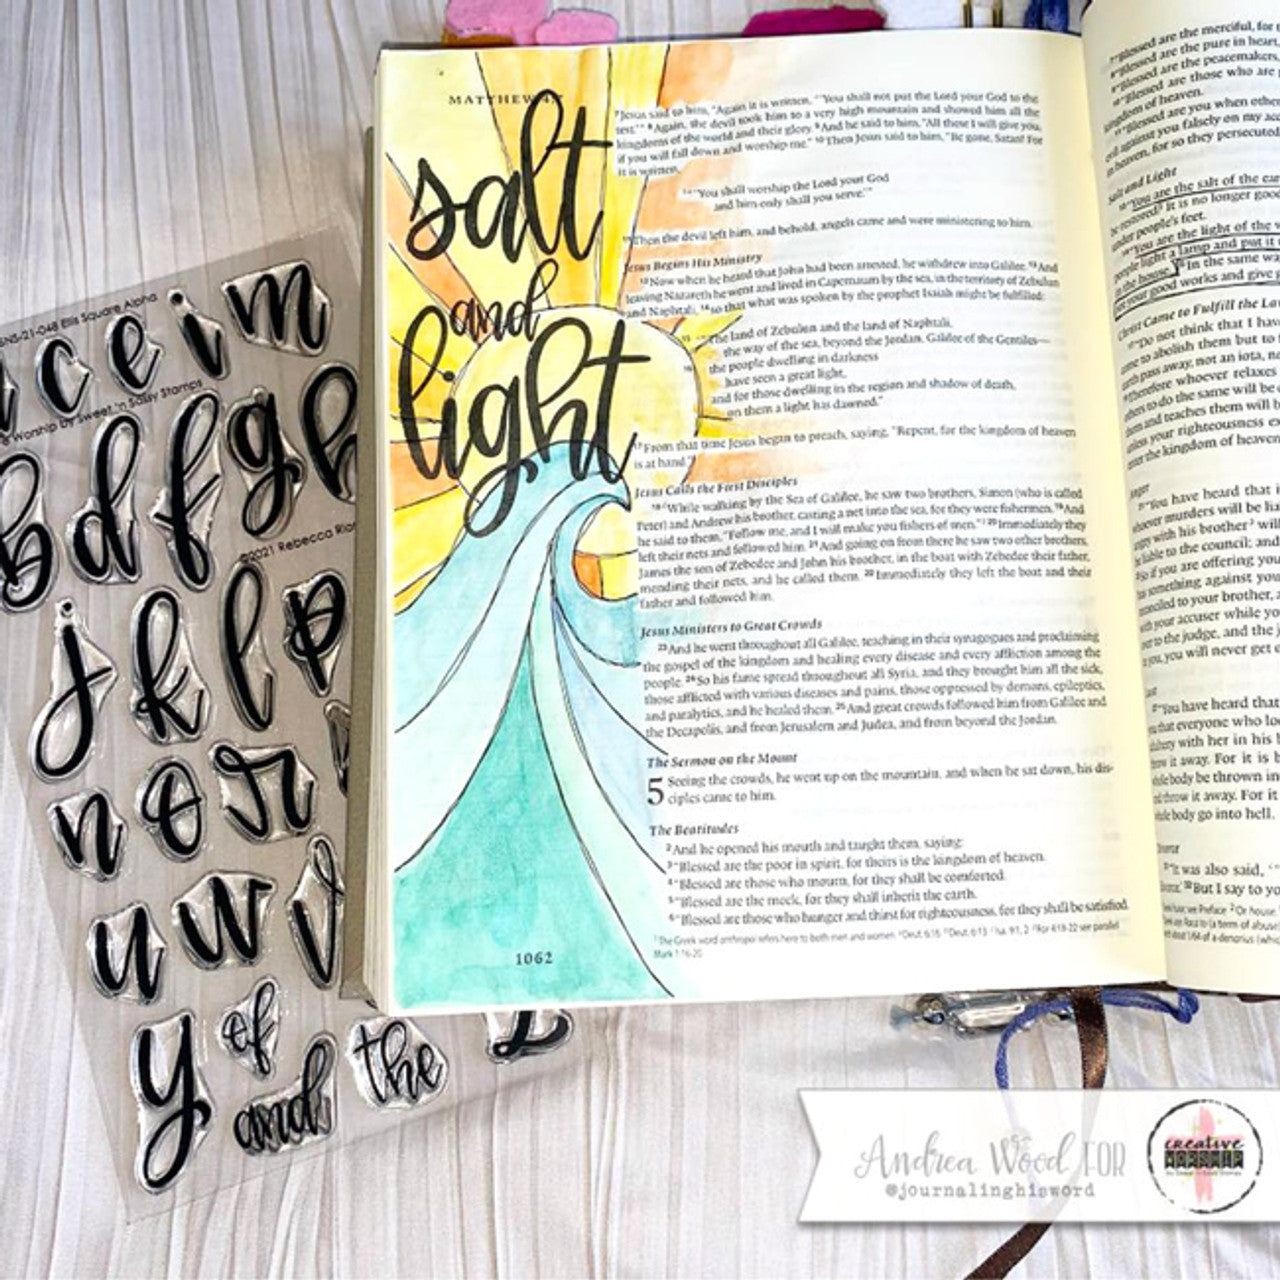 SNS-21-048 Ellis Square Alpha
c e i m
Worship by Sweet 'n Sassy Stamps
b d f g h
©2021 Rebecca
j k l p
n o r
u w v
y of
and the
MATTHEW 4
salt
and
light
Jesus said to him, "Again it is written, 'You shall not put the Lord your God to the
test.'" 8 Again, the devil took him to a very high mountain and showed him all the
kingdoms of the world and their glory. 9 And he said to him, "All these I will give you,
if you will fall down and worship me." 10 Then Jesus said to him, "Be gone, Satan! For
it is written,
"'You shall worship the Lord your God
and him only shall you serve.'"
11 Then the devil left him, and behold, angels came and were ministering to him.
Jesus Begins His Ministry
12 Now when he heard that John had been arrested, he withdrew into Galilee. 13 And
leaving Nazareth he went and lived in Capernaum by the sea, in the territory of Zebulun
and Naphtali, 14 so that what was spoken by the prophet Isaiah might be fulfilled:
15 "The land of Zebulun and the land of Naphtali,
the way of the sea, beyond the Jordan, Galilee of the Gentiles—
16 the people dwelling in darkness
have seen a great light,
and for those dwelling in the region and shadow of death,
on them a light has dawned."
17 From that time Jesus began to preach, saying, "Repent, for the kingdom of heaven
is at hand."
Jesus Calls the First Disciples
18 While walking by the Sea of Galilee, he saw two brothers, Simon (who is called
Peter) and Andrew his brother, casting a net into the sea, for they were fishermen. 19 And
he said to them, "Follow me, and I will make you fishers of men." 20 Immediately they
left their nets and followed him. 21 And going on from there he saw two other brothers,
James the son of Zebedee and John his brother, in the boat with Zebedee their father,
mending their nets, and he called them. 22 Immediately they left the boat and their
father and followed him.
Jesus Ministers to Great Crowds
23 And he went throughout all Galilee, teaching in their synagogues and proclaiming
the gospel of the kingdom and healing every disease and every affliction among the
people. 24 So his fame spread throughout all Syria, and they brought him all the sick,
those afflicted with various diseases and pains, those oppressed by demons, epileptics,
and paralytics, and he healed them. 25 And great crowds followed him from Galilee and
the Decapolis, and from Jerusalem and Judea, and from beyond the Jordan.
The Sermon on the Mount
5 Seeing the crowds, he went up on the mountain, and when he sat down, his dis-
ciples came to him.
The Beatitudes
2 And he opened his mouth and taught them, saying:
3 "Blessed are the poor in spirit, for theirs is the kingdom of heaven.
4 "Blessed are those who mourn, for they shall be comforted.
5 "Blessed are the meek, for they shall inherit the earth.
6 "Blessed are those who hunger and thirst for righteousness, for they shall be satisfied.
The Greek word anthropoi refers here to both men and women
Mark 1:16-20
1062
7 "Blessed are the merciful, for
8 "Blessed are the pure in heart,
9 "Blessed are the peacemakers,
"Blessed are those who are
kingdom of heaven.
11 "Blessed are you when others
against you falsely on my
in heaven, for so they persecuted
Salt and Light
"You are the salt of the
be restored? It is no longer good
under people's feet.
"You are the light of the
people light a lamp and put it
in the house. In the same way
your good works and give
Christ Came to Fulfill the
"Do not think that I have
come to abolish them but to
earth pass away, not an iota, not
Therefore whoever relaxes
others to do the same will be
them and teaches them will be
unless your righteousness
enter the kingdom of heaven
Anger
"You have heard that it
whoever murders will be
angry with his brother will
liable to the council; and
So if you are offering your
has something against you
to your brother,
with your accuser while you
to the judge, and the
you, you will never get
"You have heard that
that everyone who
with her in his
throw it away. For it is
whole body be thrown in
throw it away. For it
body go into hell.
"It was also said,
But I say to
Andrea Wood FOR
@journalinghisword
creative
WORSHIP